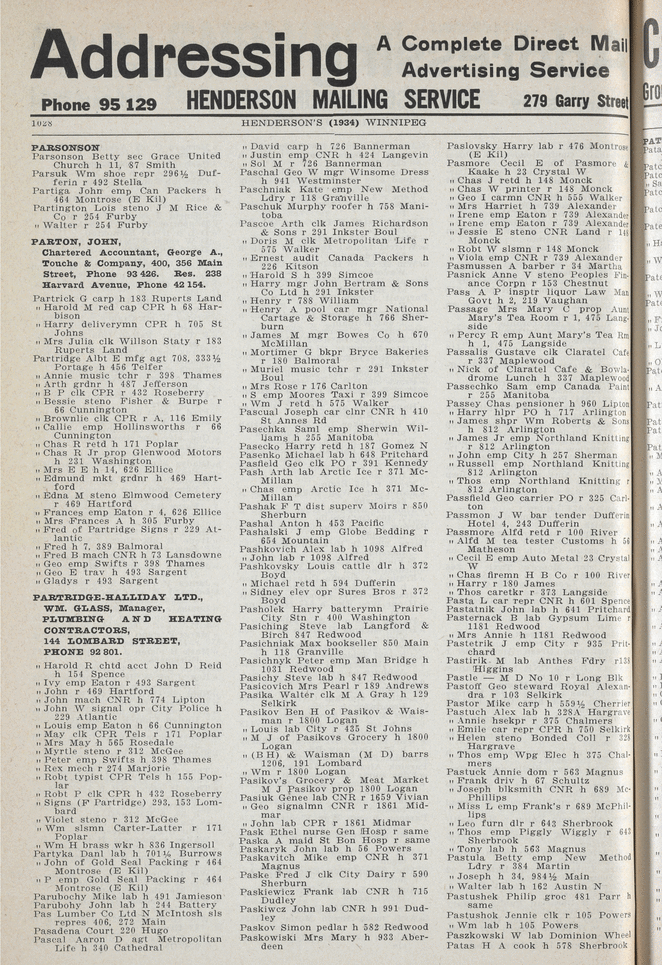 Addressing
A Complete Direct Mail
Advertising Service
Phone 95 129 HENDERSON MAILING SERVICE 279 Garry Street
1028 HENDERSON'S (1934) WINNIPEG
PARSONSON
Parsonson Betty sec Grace United
Church h 11, 87 Smith
Parsuk Wm shoe repr 296½ Duf-
ferin r 492 Stella
Partiga John emp Can Packers h
464 Montrose (E Kil)
Partington Lois steno J M Rice &
Co r 254 Furby
" Walter r 254 Furby
PARTON, JOHN,
Chartered Accountant, George A.,
Touche & Company, 400, 356 Main
Street, Phone 93 426. Res. 238
Harvard Avenue, Phone 42 154.
Partrick G carp h 183 Ruperts Land
" Harold M red cap CPR h 68 Har-
bison
" Harry deliverymn CPR h 705 St
Johns
" Mrs Julia clk Willson Staty r 183
Ruperts Land
Partridge Albt E mfg agt 708, 333½
Portage h 456 Telfer
" Annie music tchr r 398 Thames
" Arth grdnr h 487 Jefferson
" B P clk CPR r 432 Roseberry
" Bessie steno Fisher & Burpe r
66 Cunnington
" Brownlie clk CPR r A, 116 Emily
" Callie emp Hollinsworths r 66
Cunnington
" Chas R retd h 171 Poplar
" Chas R Jr prop Glenwood Motors
h 231 Washington
" Mrs E E h 14, 626 Ellice
" Edmund mkt grdnr h 469 Hart-
ford
" Edna M steno Elmwood Cemetery
r 469 Hartford
" Frances emp Eaton r 4, 626 Ellice
" Mrs Frances A h 305 Furby
" Fred of Partridge Signs r 229 At-
lantic
" Fred h 7, 389 Balmoral
" Fred B mach CNR h 73 Lansdowne
" Geo emp Swifts r 398 Thames
" Geo E trav h 493 Sargent
" Gladys r 493 Sargent
PARTRIDGE-HALLIDAY LTD.,
WM. GLASS, Manager,
PLUMBING AND HEATING
CONTRACTORS,
144 LOMBARD STREET,
PHONE 92 801.
" Harold R chtd acct John D Reid
h 154 Spence
" Ivy emp Eaton r 493 Sargent
" John r 469 Hartford
" John mach CNR h 774 Lipton
" John W signal opr City Police h
229 Atlantic
" Louis emp Eaton h 66 Cunnington
" May clk CPR Tels r 171 Poplar
" Mrs May h 565 Rosedale
" Myrtle steno r 312 McGee
" Peter emp Swifts h 398 Thames
" Rex mech r 274 Marjorie
" Robt typist CPR Tels h 155 Pop-
lar
" Robt P clk CPR h 432 Roseberry
" Signs (F Partridge) 293, 153 Lom-
bard
" Violet steno r 312 McGee
" Wm slsmn Carter-Latter r 171
Poplar
" Wm H brass wkr h 836 Ingersoll
Partyka Danl lab h 701½ Burrows
" John of Gold Seal Packing r 464
Montrose (E Kil)
" P emp Gold Seal Packing r 464
Montrose (E Kil)
Parubochy Mike lab h 491 Jamieson
Parubohy John lab h 244 Battery
Pas Lumber Co Ltd N McIntosh sls
repres 406, 272 Main
Pasadena Court 220 Hugo
Pascal Aaron D agt Metropolitan
Life h 340 Cathedral
" David carp h 726 Bannerman
" Justin emp CNR h 424 Langevin
" Sol M r 726 Bannerman
Paschal Geo W mgr Winsome Dress
h 941 Westminster
Paschniak Kate emp New Method
Ldry r 118 Granville
Paschuk Murphy roofer h 758 Mani-
toba
Pascoe Arth clk James Richardson
& Sons r 291 Inkster Boul
" Doris M clk Metropolitan Life r
575 Walker
" Ernest audit Canada Packers h
226 Kitson
" Harold S h 399 Simcoe
" Harry mgr John Bertram & Sons
Co Ltd h 291 Inkster
" Henry r 788 William
" Henry A pool car mgr National
Cartage & Storage h 766 Sher-
burn
" James M mgr Bowes Co h 670
McMillan
" Mortimer G bkpr Bryce Bakeries
r 180 Balmoral
" Muriel music tchr r 291 Inkster
Boul
" Mrs Rose r 176 Carlton
" S emp Moores Taxi r 399 Simcoe
" Wm J retd h 575 Walker
Pascual Joseph car clnr CNR h 410
St Annes Rd
Pasechka Saml emp Sherwin Wil-
liams h 255 Manitoba
Pasecko Harry retd h 187 Gomez N
Pasenko Michael lab h 648 Pritchard
Pasfield Geo clk PO r 391 Kennedy
Pash Arth lab Arctic Ice r 371 Mc-
Millan
" Chas emp Arctic Ice h 371 Mc-
Millan
Pashak F T dist superv Moirs r 850
Sherburn
Pashal Anton h 453 Pacific
Pashalski J emp Globe Bedding r
654 Mountain
Pashkovich Alex lab h 1098 Alfred
" John lab r 1098 Alfred
Pashkovsky Louis cattle dlr h 372
Boyd
" Michael retd h 594 Dufferin
" Sidney elev opr Sures Bros r 372
Boyd
Pasholek Harry batterymn Prairie
City Stn r 400 Washington
Pasiching Steve lab Langford &
Birch 847 Redwood
Pasichniak Max bookseller 850 Main
h 118 Granville
Pasichnyk Peter emp Man Bridge h
1031 Redwood
Pasichy Steve lab h 847 Redwood
Pasicovich Mrs Pearl r 189 Andrews
Pasika Walter clk M A Gray h 129
Selkirk
Pasikov Ben H of Pasikov & Wais-
man r 1800 Logan
" Louis lab City r 435 St Johns
" M J of Pasikovs Grocery h 1800
Logan
" (B H) & Waisman (M D) barrs
1206, 191 Lombard
" Wm r 1800 Logan
Pasikov's Grocery & Meat Market
M J Pasikov prop 1800 Logan
Pasiuk Genee lab CNR r 1659 Vivian
" Geo signalmn CNR r 1861 Mid-
mar
" John lab CPR r 1861 Midmar
Pask Ethel nurse Gen Hosp r same
Paska A maid St Bon Hosp r same
Paskaryk John lab h 56 Powers
Paskavitch Mike emp CNR h 371
Magnus
Paske Fred J clk City Dairy r 590
Sherburn
Paskiewicz Frank lab CNR h 715
Dudley
Paskiwcz John lab CNR h 991 Dud-
ley
Paskov Simon pedlar h 582 Redwood
Paskowiski Mrs Mary h 933 Aber-
deen
Paslovsky Harry lab r 476 Montrose
(E Kil)
Pasmore Cecil E of Pasmore &
Kaake h 23 Crystal W
" Chas J retd h 148 Monck
" Chas W printer r 148 Monck
" Geo I carmn CNR h 555 Walker
" Mrs Harriet h 739 Alexander
" Irene emp Eaton r 739 Alexander
" Irene emp Eaton r 739 Alexander
" Jessie E steno CNR Land r 148
Monck
" Robt W slsmn r 148 Monck
" Viola emp CNR r 739 Alexander
Pasmussen A barber r 34 Martha
Pasnick Anne W steno Peoples Fin-
ance Corpn r 153 Chestnut
Pass A P insptr liquor Law Man
Govt h 2, 219 Vaughan
Passage Mrs Mary C prop Aunt
Mary's Tea Room r 1, 475 Lang-
side
" Percy R emp Aunt Mary's Tea Rm
h 1, 475 Langside
Passalis Gustave clk Claratel Cafe
r 337 Maplewood
" Nick of Claratel Cafe & Bowla-
drome Lunch h 337 Maplewood
Passechko Sam emp Canada Paint
r 255 Manitoba
Passey Chas pensioner h 960 Lipton
" Harry hlpr PO h 717 Arlington
" James shpr Wm Roberts & Sons
h 812 Arlington
" James Jr emp Northland Knitting
r 812 Arlington
" John emp City h 257 Sherman
" Russell emp Northland Knitting
812 Arlington
" Thos emp Northland Knitting r
812 Arlington
Passfield Geo carrier PO r 325 Carl-
ton
Passmon J W bar tender Dufferin
Hotel 4, 243 Dufferin
Passmore Alfd retd r 100 River
" Alfd M tea tester Customs h 56
Matheson
" Cecil E emp Auto Metal 23 Crystal
W
" Chas firemn H B Co r 100 River
" Harry r 180 James
" Thos caretkr r 373 Langside
Pasta L car repr CNR h 601 Spence
Pastatnik John lab h 641 Pritchard
Pasternack B lab Gypsum Lime r
1181 Redwood
" Mrs Annie h 1181 Redwood
Pastetrik J emp City r 935 Prit-
chard
Pastirik M lab Anthes Fdry r138
Higgins
Pastle — M D No 10 r Long Blk
Pastoff Geo steward Royal Alexan-
dra r 103 Selkirk
Pastor Mike carp h 559½ Cherrier
Pastuch Alex lab h 328A Hargrave
" Annie hsekpr r 375 Chalmers
" Emile car repr CPR h 750 Selkirk
" Helen steno Bonded Coll r 328
Hargrave
" Thos emp Wpg Elec h 375 Chal-
mers
Pastuck Annie dom r 563 Magnus
" Frank driv h 67 Schultz
" Joseph blksmith CNR h 689 Mc-
Phillips
" Miss L emp Frank's r 689 McPhil-
lips
" Leo furn dlr r 643 Sherbrook
" Thos emp Piggly Wiggly r 643
Sherbrook
" Tony lab h 563 Magnus
Pastula Betty emp New Method
Ldry r 384 Martin
" Joseph h 34, 984½ Main
" Walter lab h 162 Austin N
Pastushek Philip groc 481 Parr h
same
Pastushok Jennie clk r 105 Powers
" Wm lab h 105 Powers
Paszkowski W lab Dominion Wheel
Patas H A cook h 578 Sherbrook